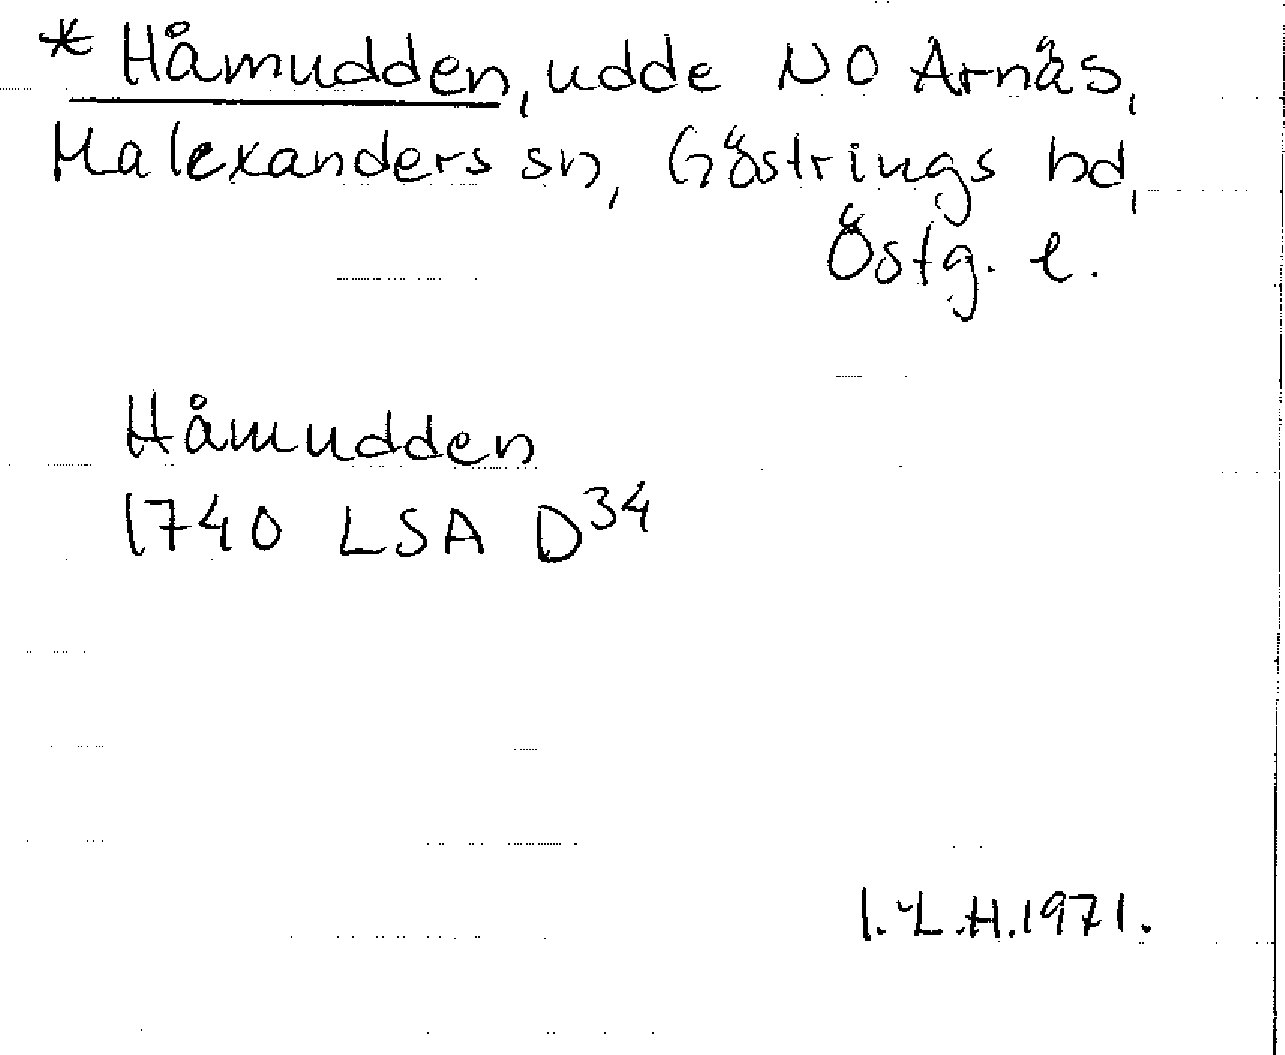 * Håmudden, udde NO Arnäs,
Malexanders sn, Göstrings hd,
Östg. l.
Håmudden
1740 LSA D³⁴
I.L.H.1971.